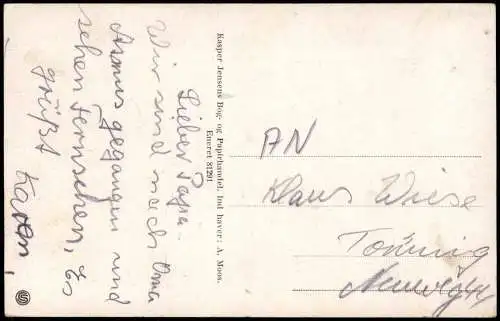 Lieber Papa.
Wir sind nach Oma
Asmus gegangen und
sehen Fernsehen, Es
grüßt
Karen,
Kasper Jensens Bog- og Papirhandel. Ind haver: A. Moos.
Eneret 81291
AN
Klaus Wiese
Tönning